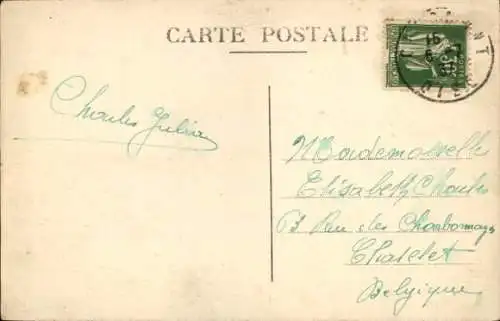 CARTE POSTALE
Charles Julien
Mademoiselle
Elisabeth Charles
63 Rue des Charbonnages
Chatelet
Belgique